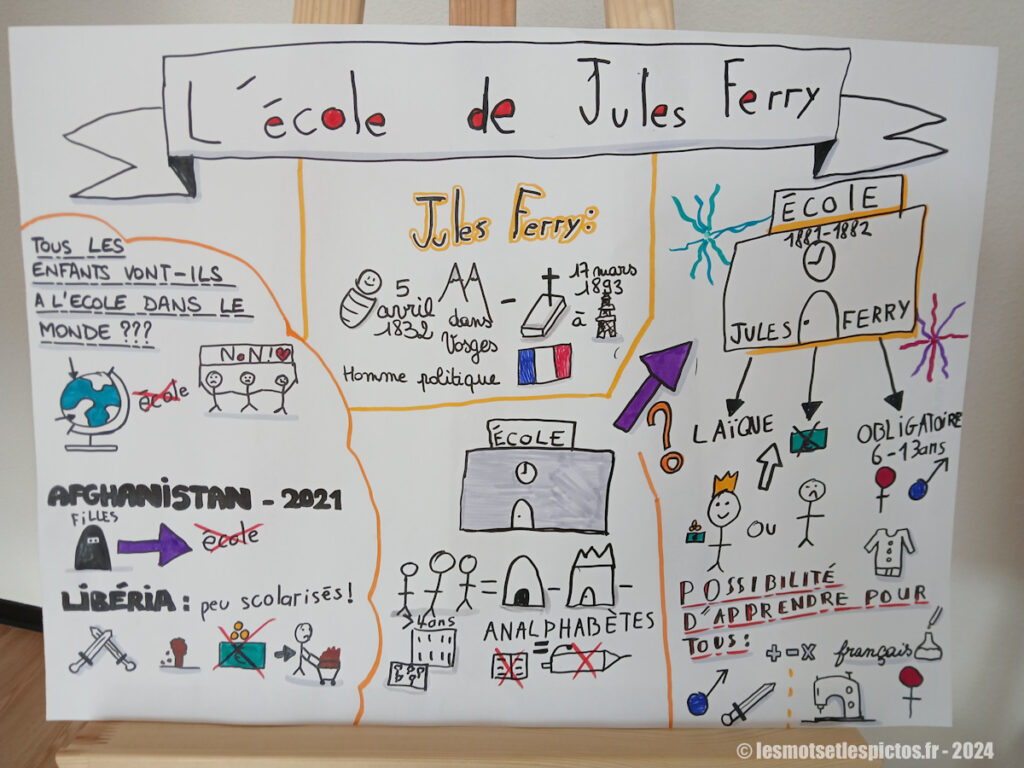 L'école de Jules Ferry
TOUS LES
ENFANTS VONT-ILS
A L'ECOLE DANS LE
MONDE ???
école
NON!
AFGHANISTAN - 2021
FILLES
école
LIBÉRIA : peu scolarisés!
Jules Ferry:
5
avril
1832
dans
Vosges
-
17 mars
1893
à
Homme politique
ÉCOLE
= - -
> 4ans
ANALPHABÈTES
=
?
ÉCOLE
1881-1882
JULES FERRY
LAÏQUE
OBLIGATOIRE
6-13ans
OU
POSSIBILITÉ
D'APPRENDRE POUR
TOUS:
+ - x
français
© lesmotsetlespictos.fr - 2024